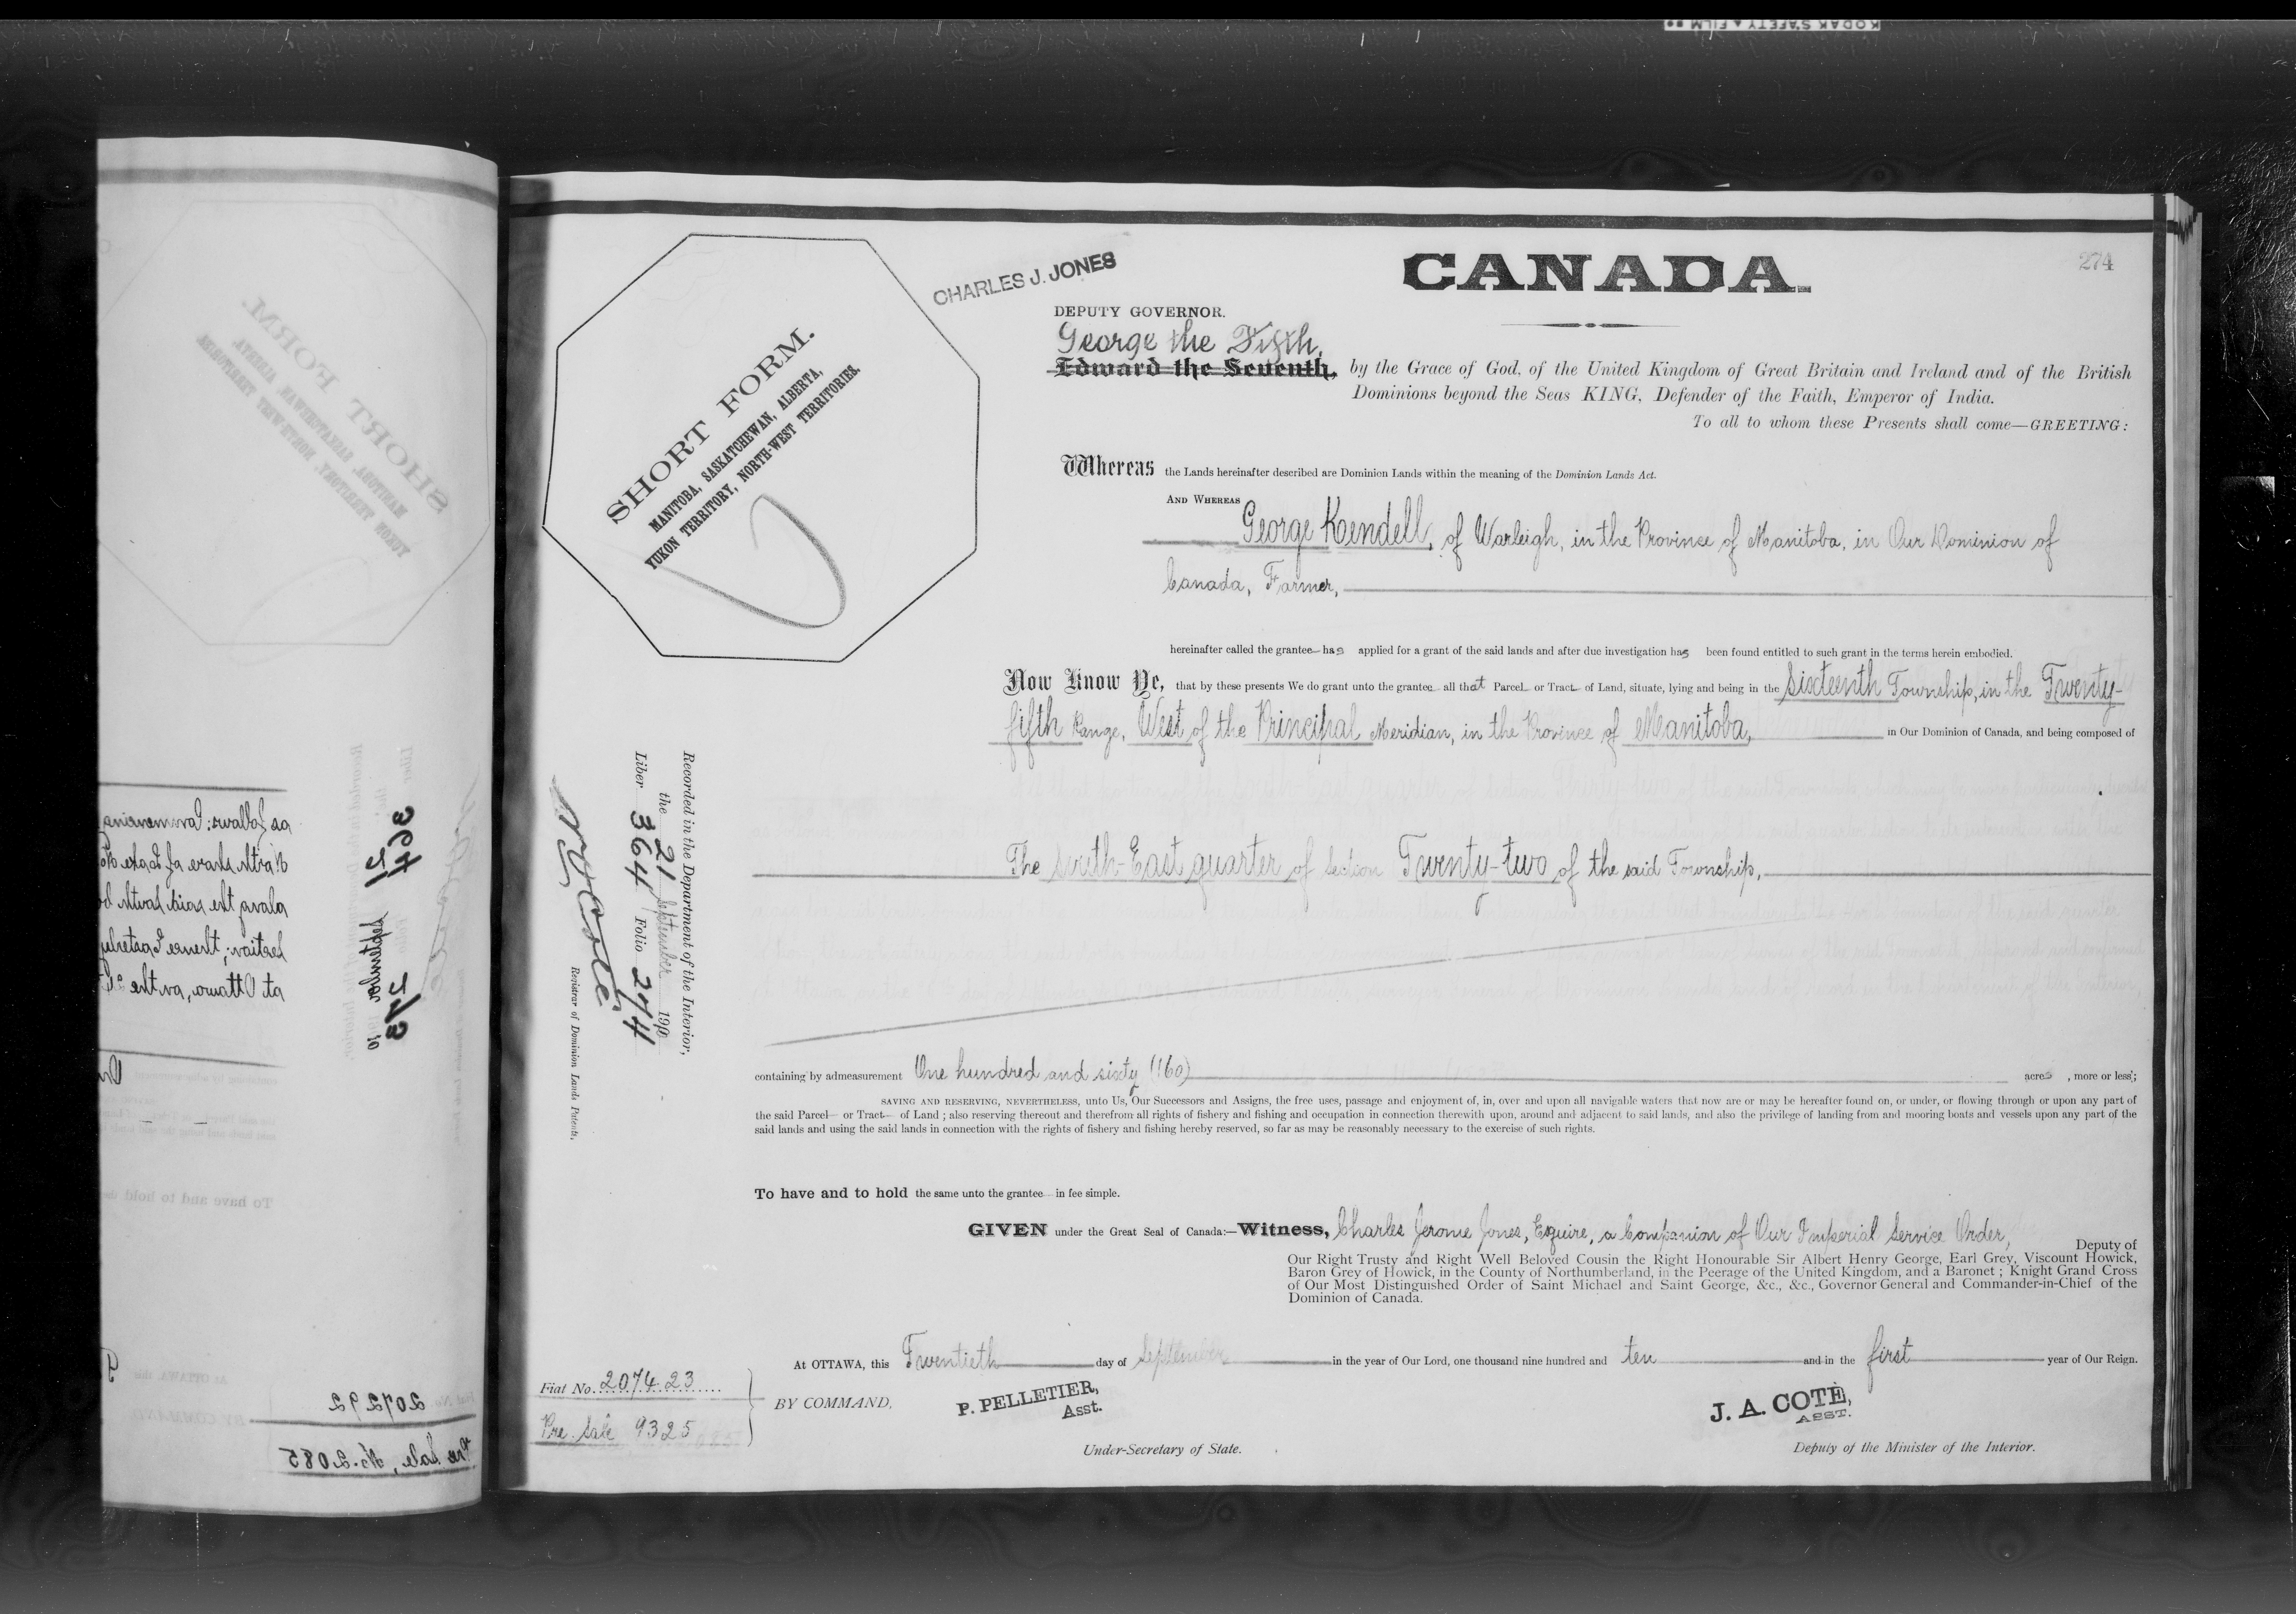 KODAK SAFETY FILM
CANADA.
274
CHARLES J. JONES
DEPUTY GOVERNOR.
George the Fifth,
Edward the Seventh, by the Grace of God, of the United Kingdom of Great Britain and Ireland and of the British
Dominions beyond the Seas KING, Defender of the Faith, Emperor of India.
To all to whom these Presents shall come—GREETING:
SHORT FORM.
MANITOBA, SASKATCHEWAN, ALBERTA,
YUKON TERRITORY, NORTH-WEST TERRITORIES.
Whereas the Lands hereinafter described are Dominion Lands within the meaning of the Dominion Lands Act.
AND WHEREAS
George Kendell, of Warleigh, in the Province of Manitoba, in Our Dominion of
Canada, Farmer,
hereinafter called the grantee has applied for a grant of the said lands and after due investigation has been found entitled to such grant in the terms herein embodied.
Now Know Ye, that by these presents We do grant unto the grantee all that Parcel or Tract of Land, situate, lying and being in the Sixteenth Township, in the Twenty-
fifth Range, West of the Principal Meridian, in the Province of Manitoba, in Our Dominion of Canada, and being composed of
The South-East quarter of Section Twenty-two of the said Township,
Recorded in the Department of the Interior,
the 21 September 1910
Liber 364 Folio 274
Registrar of Dominion Lands Patents.
containing by admeasurement One hundred and sixty (160) acres, more or less;
SAVING AND RESERVING, NEVERTHELESS, unto Us, Our Successors and Assigns, the free uses, passage and enjoyment of, in, over and upon all navigable waters that now are or may be hereafter found on, or under, or flowing through or upon any part of
the said Parcel or Tract of Land; also reserving thereout and therefrom all rights of fishery and fishing and occupation in connection therewith upon, around and adjacent to said lands, and also the privilege of landing from and mooring boats and vessels upon any part of the
said lands and using the said lands in connection with the rights of fishery and fishing hereby reserved, so far as may be reasonably necessary to the exercise of such rights.
To have and to hold the same unto the grantee in fee simple.
GIVEN under the Great Seal of Canada:—Witness, Charles Jerome Jones, Esquire, a Companion of Our Imperial Service Order, Deputy of
Our Right Trusty and Right Well Beloved Cousin the Right Honourable Sir Albert Henry George, Earl Grey, Viscount Howick,
Baron Grey of Howick, in the County of Northumberland, in the Peerage of the United Kingdom, and a Baronet; Knight Grand Cross
of Our Most Distinguished Order of Saint Michael and Saint George, &c., &c., Governor General and Commander-in-Chief of the
Dominion of Canada.
At OTTAWA, this Twentieth day of September in the year of Our Lord, one thousand nine hundred and ten and in the first year of Our Reign.
Fiat No. 207423
Pre. Sale 9325
BY COMMAND,
P. PELLETIER,
Asst.
Under-Secretary of State.
J. A. COTÉ,
ASST.
Deputy of the Minister of the Interior.